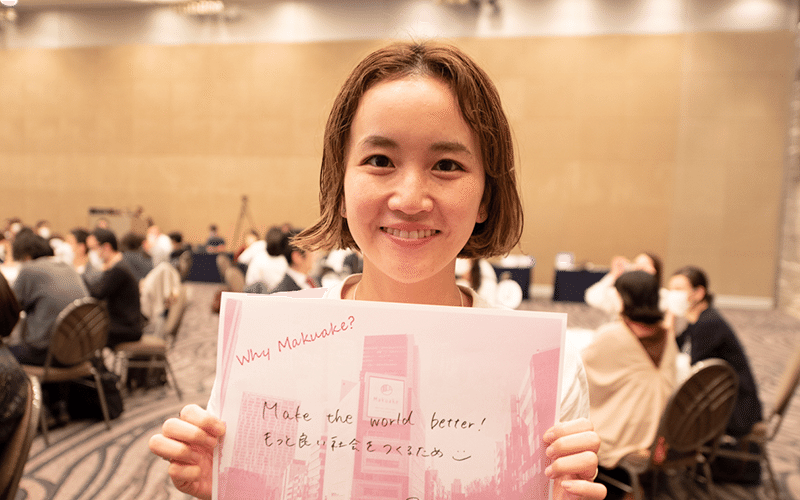 Why Makuake?
Makuake
Make the world better!
もっと良い社会をつくるため